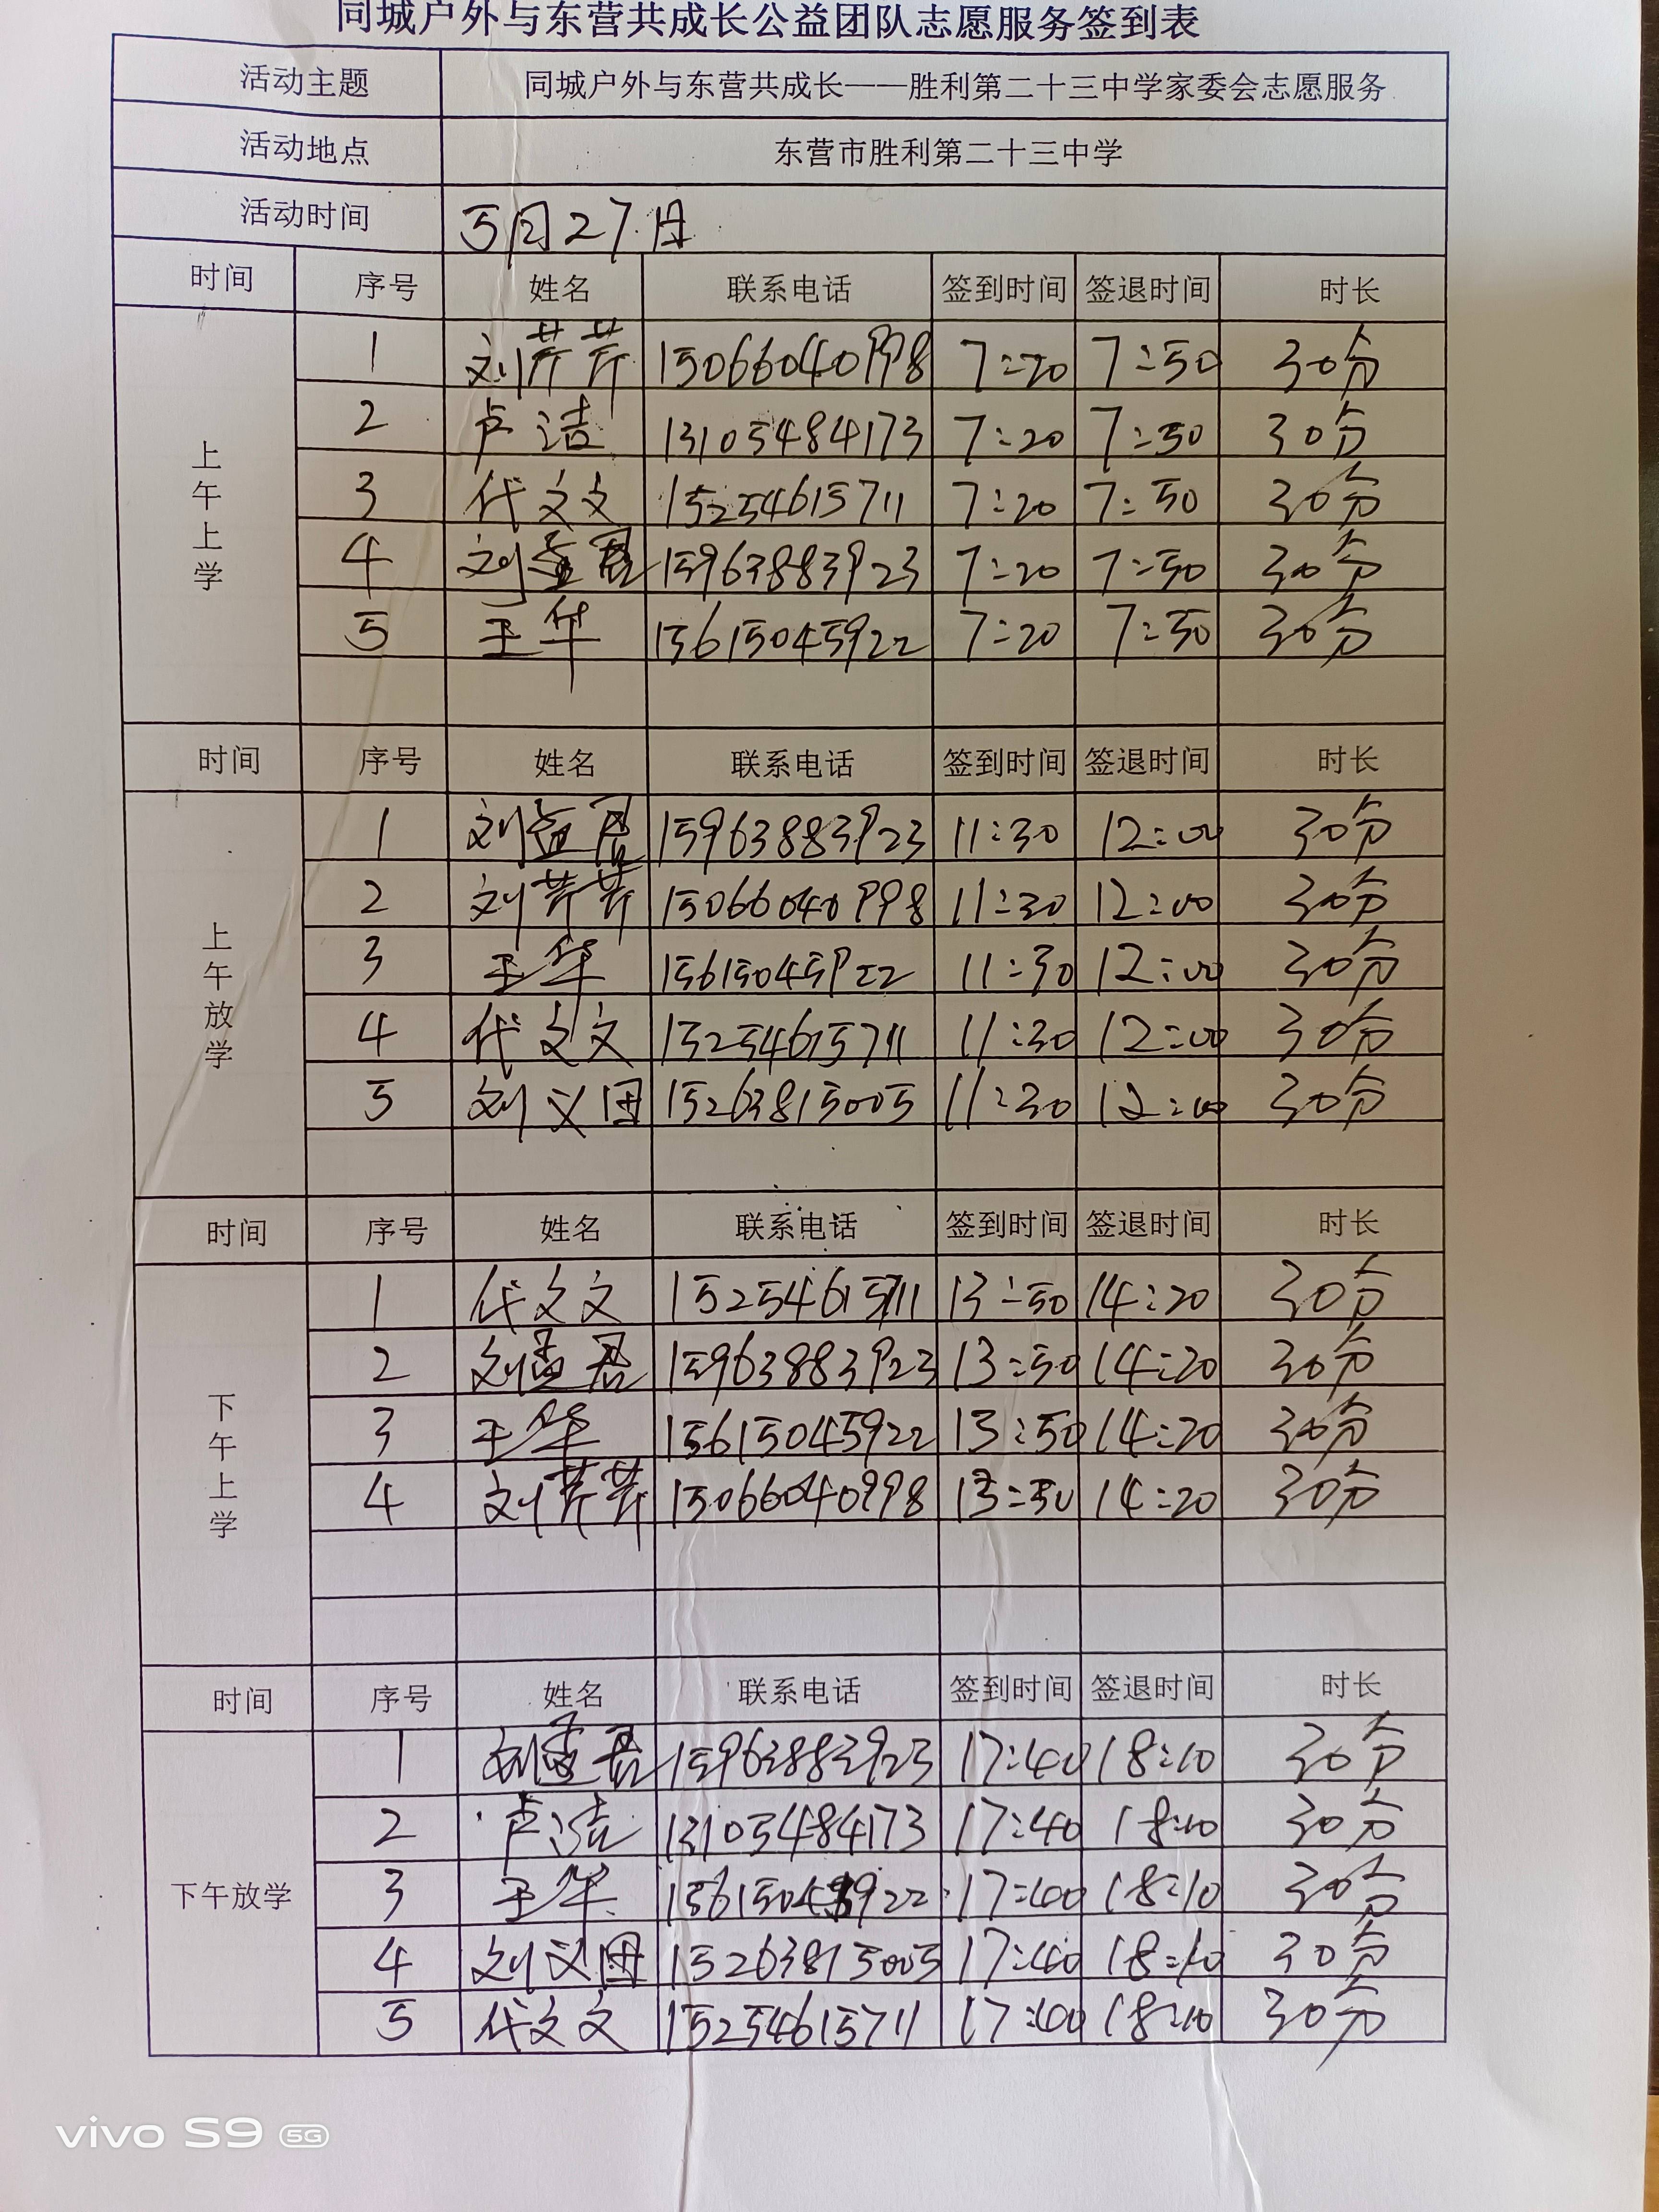 同城户外与东营共成长公益团队志愿服务签到表
活动主题 同城户外与东营共成长——胜利第二十三中学家委会志愿服务
活动地点 东营市胜利第二十三中学
活动时间 5月27.日
时间 序号 姓名 联系电话 签到时间 签退时间 时长
上午上学
1 刘芹芹 15066040998 7:20 7:50 30分
2 卢洁 13105484173 7:20 7:50 30分
3 代文文 15254615711 7:20 7:50 30分
4 刘孟君 15963883923 7:20 7:50 30分
5 王华 15615045922 7:20 7:50 30分
时间 序号 姓名 联系电话 签到时间 签退时间 时长
上午放学
1 刘孟君 15963883923 11:30 12:00 30分
2 刘芹芹 15066040998 11:30 12:00 30分
3 王华 15615045922 11:30 12:00 30分
4 代文文 15254615711 11:30 12:00 30分
5 刘义田 15263815005 11:30 12:00 30分
时间 序号 姓名 联系电话 签到时间 签退时间 时长
下午上学
1 代文文 15254615711 13:50 14:20 30分
2 刘孟君 15963883923 13:50 14:20 30分
3 王华 15615045922 13:50 14:20 30分
4 刘芹芹 15066040998 13:50 14:20 30分
时间 序号 姓名 联系电话 签到时间 签退时间 时长
下午放学
1 刘孟君 15963883923 17:40 18:10 30分
2 卢洁 13105484173 17:40 18:10 30分
3 王华 15615045922 17:40 18:10 30分
4 刘义田 15263815005 17:40 18:10 30分
5 代文文 15254615711 17:40 18:10 30分
vivo S9 5G